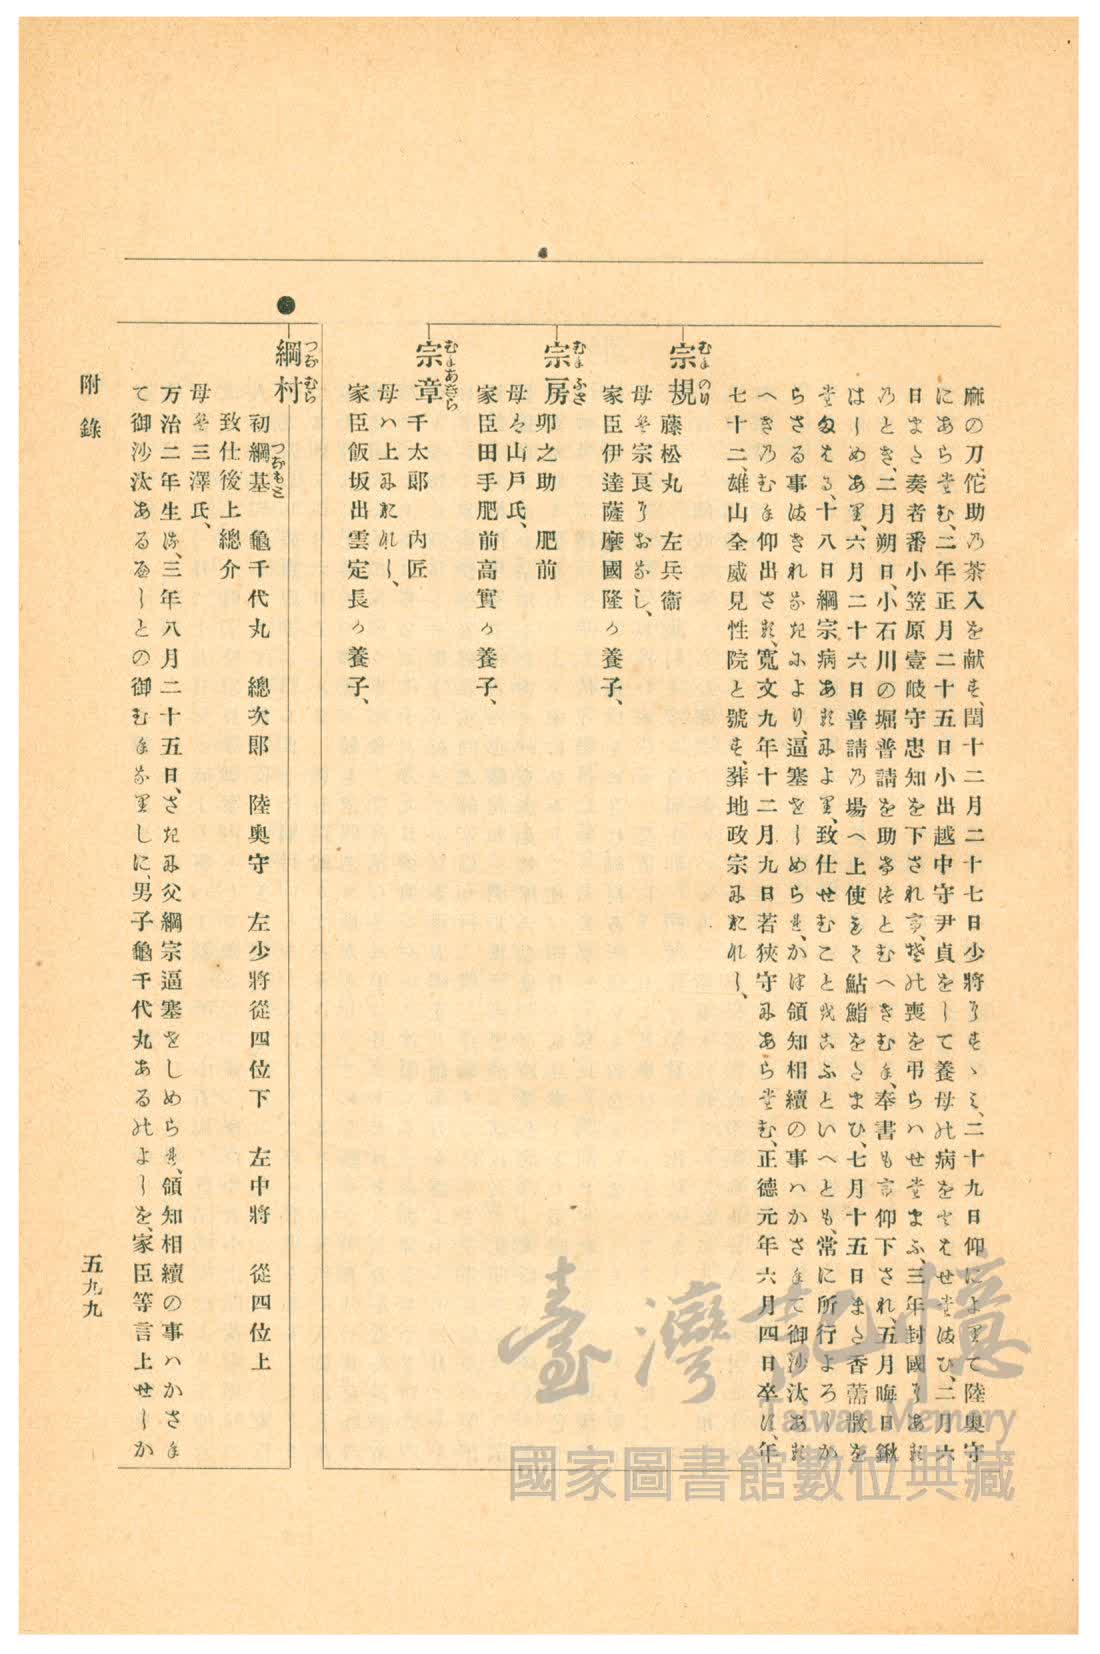 麻の刀、佗助の茶入を献す、閏十二月二十七日少將にすゝミ、二十九日仰によりて陸奥守
にあらたむ、二年正月二十五日小出越中守尹貞をして養母の病をとはせたまひ、二月六
日また奏者番小笠原壹岐守忠知を下されて、その喪を弔らハせたまふ、三年封國にある
のとき、二月朔日、小石川の堀普請を助けつとむへきむね、奉書もて仰下され、五月晦日鍬
はしめあり、六月二十六日普請の場へ上使もて鮎鮨をたまひ、七月十五日また香薷散を
たまはる、十八日綱宗、病あるにより、致仕せむことをこふといへとも、常に所行よろしか
らさる事きこえたるにより、逼塞せしめられ、かつ領知相續の事ハかさねて御沙汰ある
へきのむね仰出さる、寛文九年十二月九日若狹守にあらたむ、正德元年六月四日卒す、年
七十二、雄山全威見性院と號す、葬地政宗におなし、
宗規 むねのり 藤松丸 左兵衞
母は宗良におなし、
家臣伊達薩摩國隆か養子、
宗房 むねふさ 卯之助 肥前
母は山戸氏、
家臣田手肥前高實か養子、
宗章 むねあきら 千太郎 内匠
母ハ上におなし、
家臣飯坂出雲定長か養子、
綱村 つなむら 初綱基 つなもと 龜千代丸 總次郎 陸奥守 左少將從四位下 左中將 從四位上
致仕後上總介
母は三澤氏、
万治二年生る、三年八月二十五日、さきに父綱宗逼塞せしめられ、領知相續の事ハかさね
て御沙汰あるへしとの御むねなりしに、男子龜千代丸あるのよしを、家臣等言上せしか
附錄
五九九
臺灣記憶
Taiwan Memory
國家圖書館數位典藏